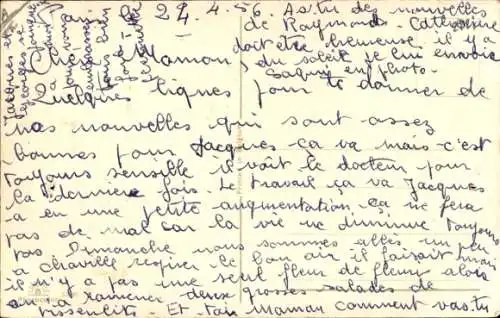 Paris le 24.4.56. As-tu des nouvelles
de Raymond. Catherine
doit être heureuse il y a
du soleil je lui envoie
sa photo.
Chère Maman
Quelques lignes pour te donner de
nos nouvelles qui sont assez
bonnes pour Jacques ça va mais c'est
toujours sensible il voit le docteur pour
la dernière fois. Le travail ça va Jacques
a eu une petite augmentation ça ne fera
pas de mal car la vie ne diminue toujours
pas Dimanche nous sommes allés un peu
a chaville respirer le bon air il faisait
il n'y a pas une seul fleur de fleur alors
a ramener deux grosses salades de
pissenlits. Et toi Maman comment vas-tu